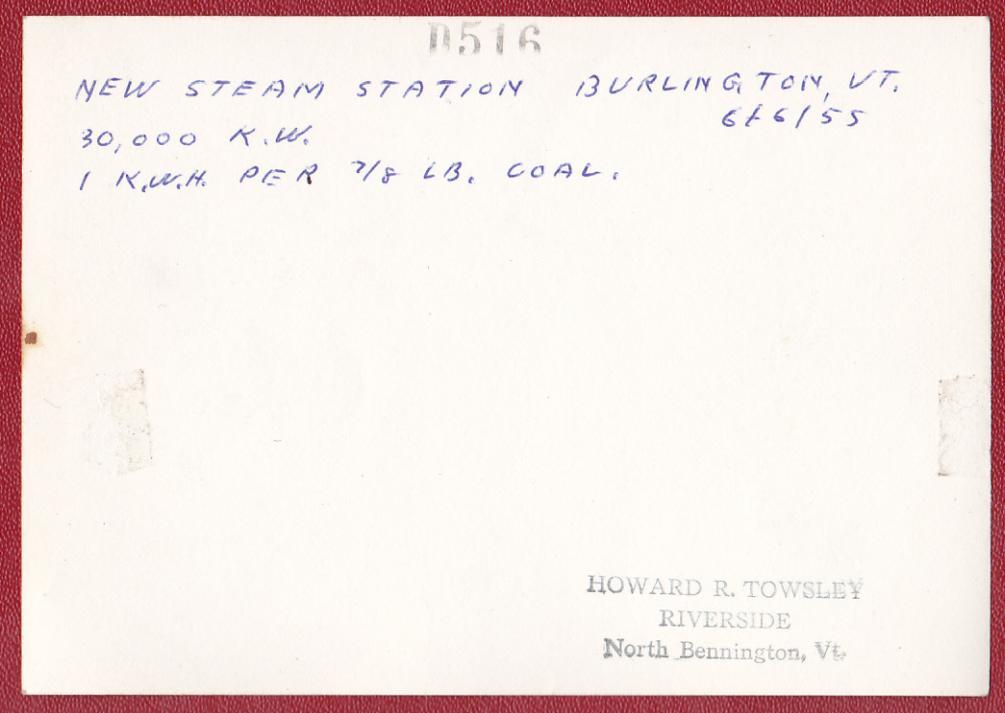 D516
NEW STEAM STATION BURLINGTON, VT.
6/6/55
30,000 K.W.
1 K.W.H. PER 7/8 LB. COAL.
HOWARD R. TOWSLEY
RIVERSIDE
North Bennington, Vt.